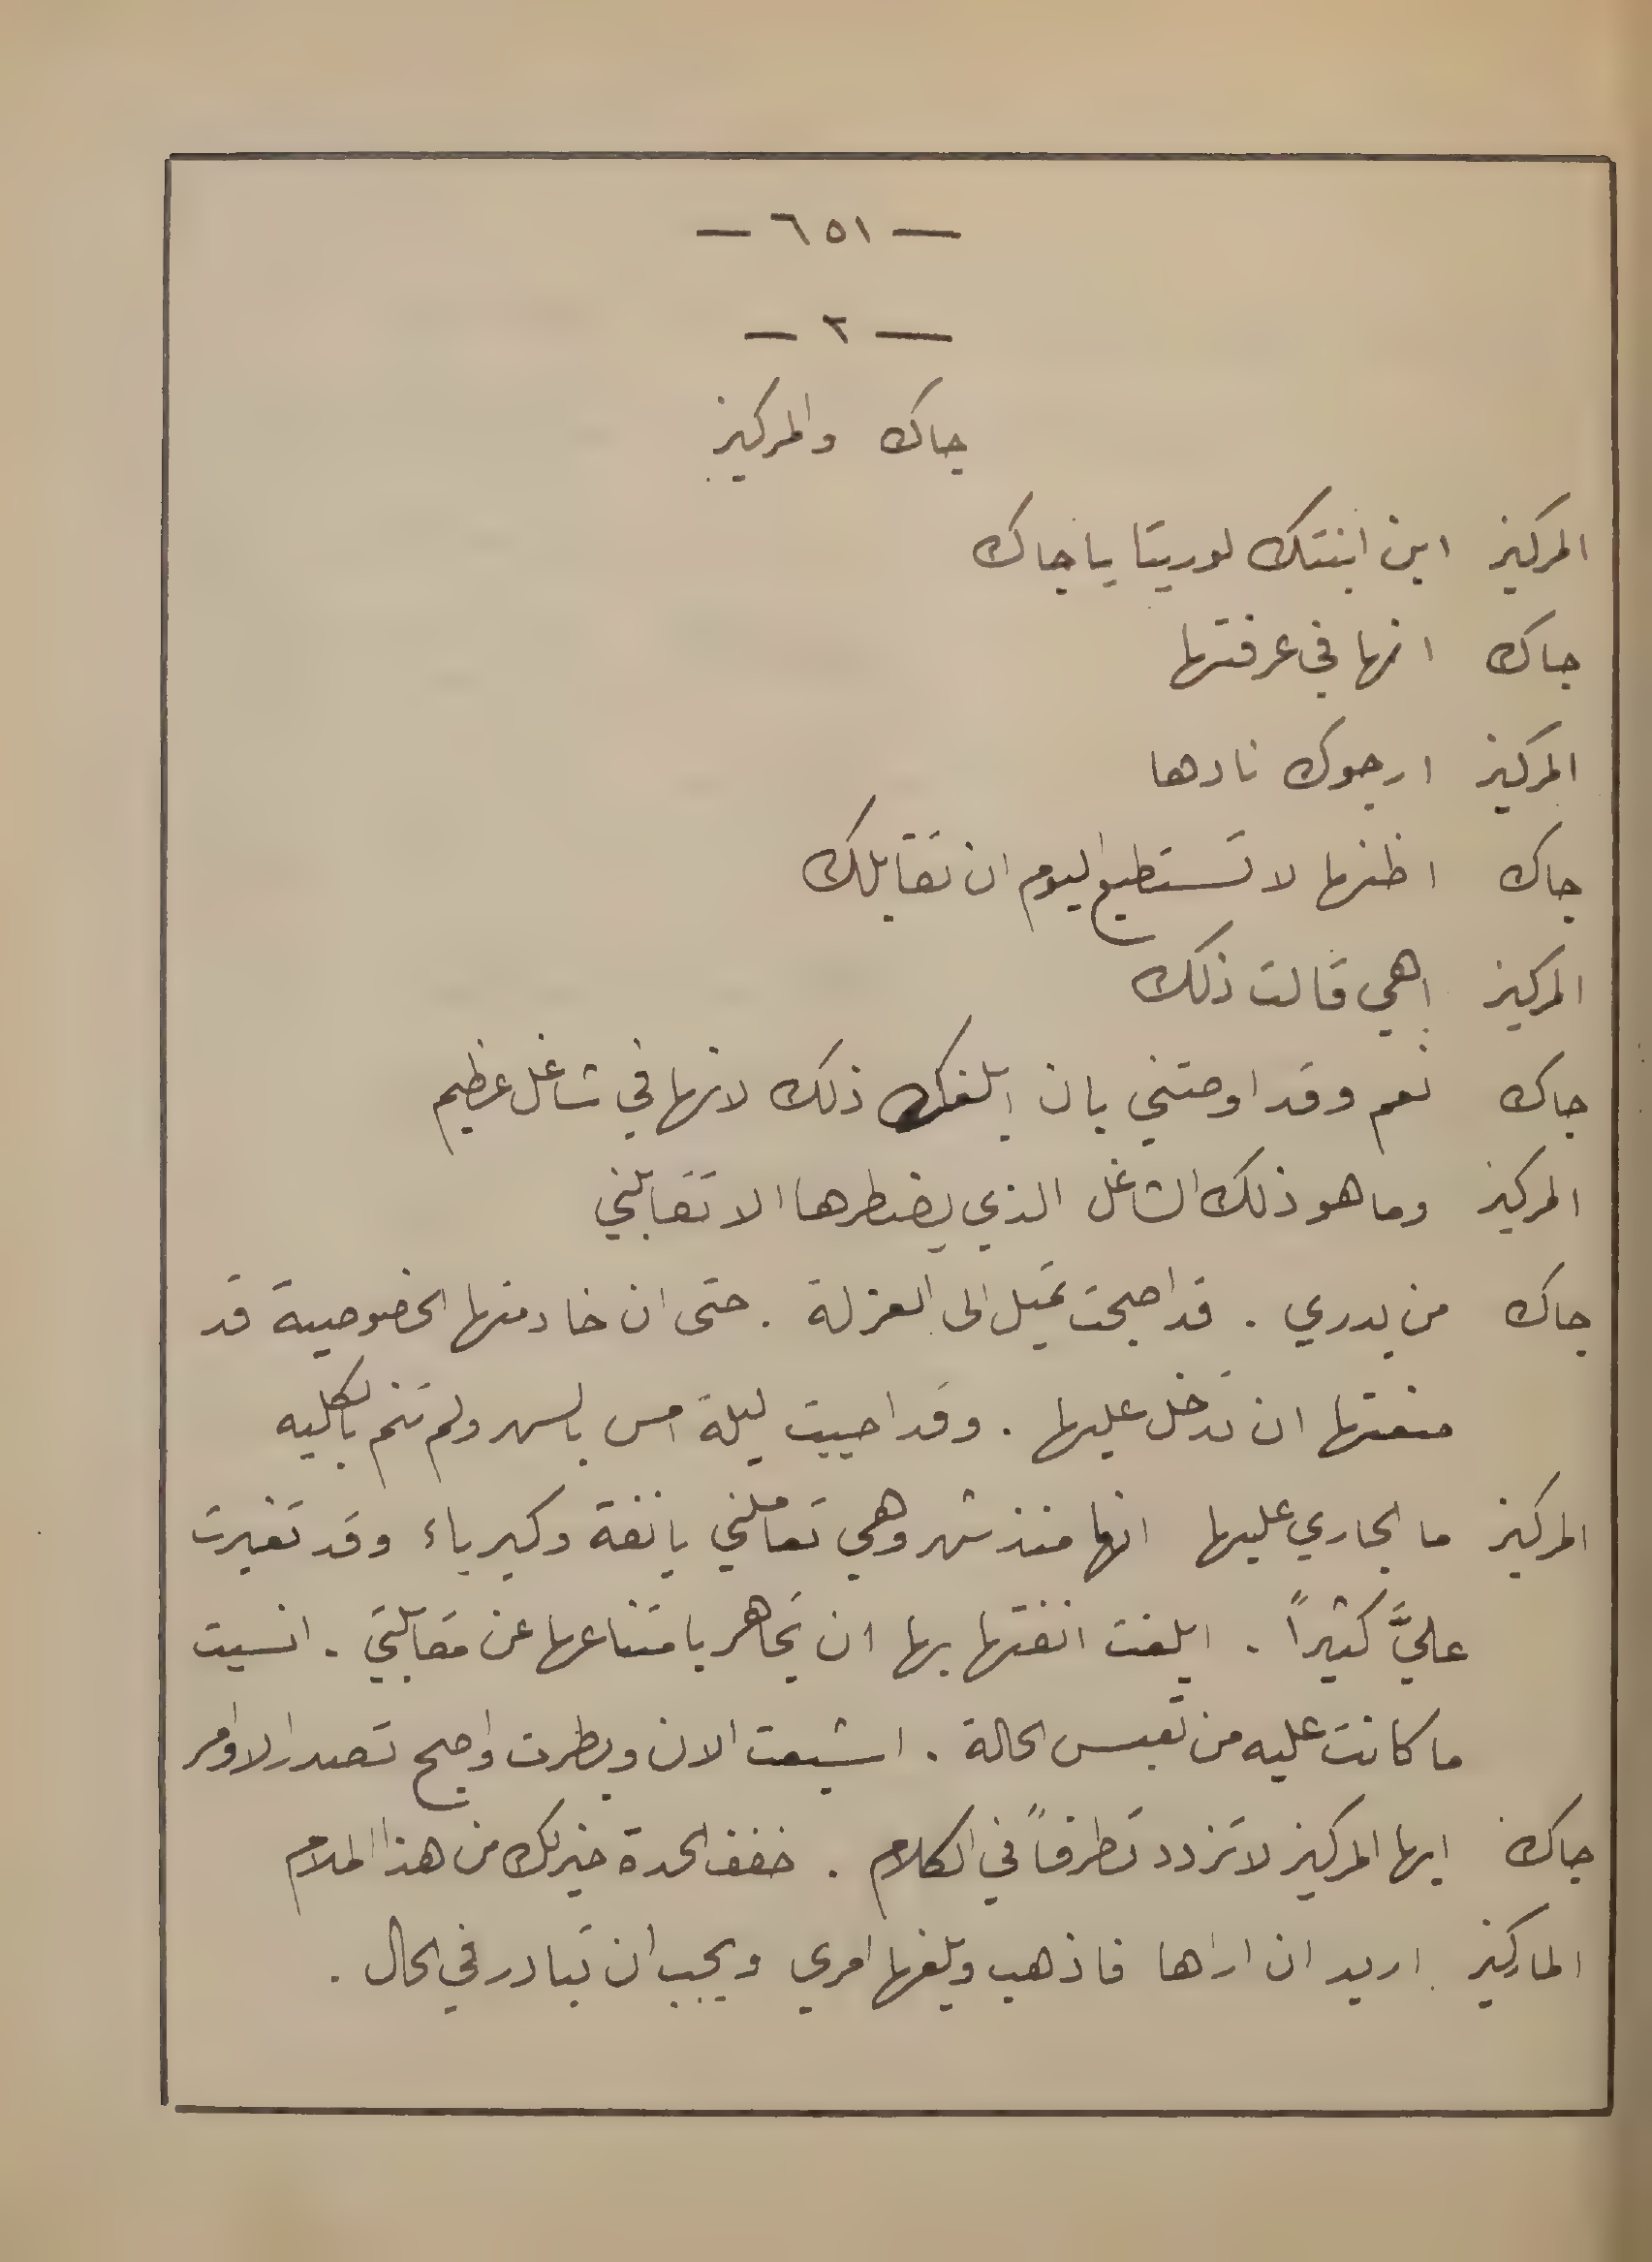 — ٦٥١ —
— ٢ —
جاك والمركيز
المركيز اين ابنتك لوريتا يا جاك
جاك انها في غرفتها
المركيز ارجوك نادها
جاك اظنها لا تستطيع اليوم ان تقابلك
المركيز اهي قالت ذلك
جاك نعم وقد اوصتني بان ابلغك ذلك لانها في شاغل عظيم
المركيز وما هو ذلك الشاغل الذي يضطرها الا تقابلني
جاك من يدري . قد اصبحت تميل الى العزلة . حتى ان خادمتها الخصوصية قد
منعتها ان تدخل عليها . وقد احييت ليلة امس بالسهر ولم تنم بالكليه
المركيز ما الجاري عليها انها منذ شهر وهي تعاملني بانفة وكبرياء وقد تغيرت
عليَّ كثيراً . ابلغت انفتها بها ان تجاهر بامتناعها عن مقابلتي . انسيت
ما كانت عليه من تعيس الحالة . اشبعت الان وبطرت واصبح تصدر الاوامر
جاك ايها المركيز لا تزدد تطرفاً في الكلام . خفف الحدة خير لك من هذا الملام
الماركيز اريد ان اراها فاذهب وبلغها امري ويجب ان تبادر في الحال .